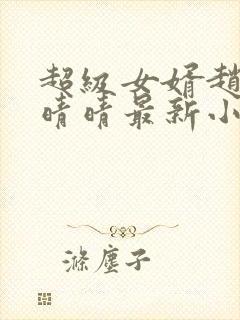 超级女婿趙
晴晴最新小
滌塵子